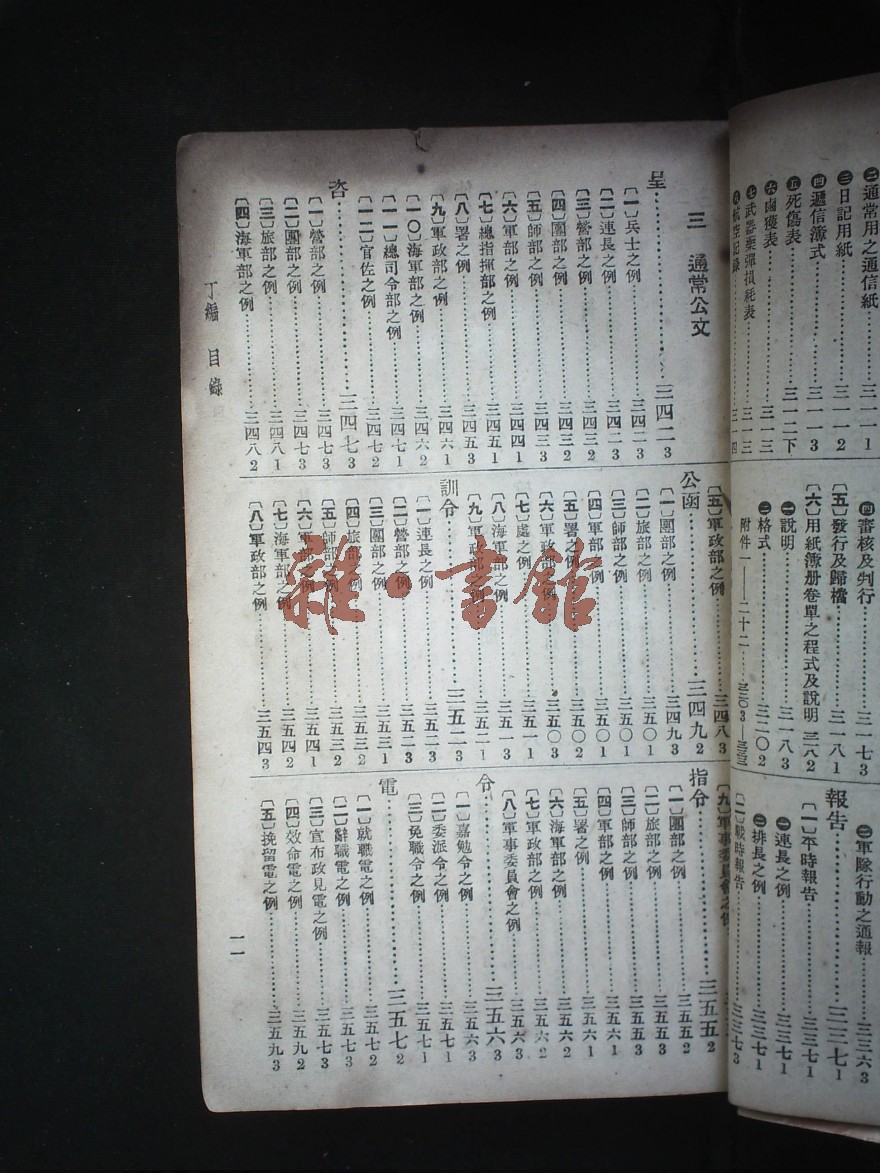 ㊁通常用之通信紙……三一一1
㊂日記用紙……三一一2
㊃遞信簿式……三一一3
㊄死傷表……三一二下
㊅鹵獲表……三一三
㊆武器藥彈損耗表……三一三
㊇航空記錄……三一四
㊃審核及判行……三一七3
〔五〕發行及歸檔……三一八1
〔六〕用紙簿册卷單之程式及說明 三一八2
㊀說明……三一八3
㊁格式……三二〇2
附件一——二十二……三二〇3
㊀軍隊行動之通報……三三六3
報告……三三七1
〔一〕平時報告……三三七1
㊀連長之例……三三七1
㊁排長之例……三三七1
〔二〕戰時報告……三三七3
三 通常公文
呈……三四二3
〔一〕兵士之例……三四二3
〔二〕連長之例……三四二3
〔三〕營部之例……三四三2
〔四〕團部之例……三四三2
〔五〕師部之例……三四三3
〔六〕軍部之例……三四四1
〔七〕總指揮部之例……三四五1
〔八〕署之例……三四五3
〔九〕軍政部之例……三四六1
〔一〇〕海軍部之例……三四六2
〔一一〕總司令部之例……三四七1
〔一二〕官佐之例……三四七2
咨……三四七3
〔一〕營部之例……三四七3
〔二〕團部之例……三四七3
〔三〕旅部之例……三四八1
〔四〕海軍部之例……三四八2
〔五〕軍政部之例……三四八3
公函……三四九2
〔一〕團部之例……三四九3
〔二〕旅部之例……三五〇1
〔三〕師部之例……三五〇1
〔四〕軍部之例……三五〇1
〔五〕署之例……三五〇2
〔六〕軍政部之例……三五〇3
〔七〕處之例……三五一1
〔八〕海軍部之例……三五一3
〔九〕軍政部之例……三五二1
訓令……三五二3
〔一〕連長之例……三五二3
〔二〕營部之例……三五二3
〔三〕團部之例……三五三1
〔四〕旅部之例……三五三2
〔五〕師部之例……三五三2
〔六〕軍部之例……三五四1
〔七〕海軍部之例……三五四2
〔八〕軍政部之例……三五四3
〔九〕軍事委員會之例
指令……三五五2
〔一〕團部之例……三五五2
〔二〕旅部之例……三五五3
〔三〕師部之例……三五五3
〔四〕軍部之例……三五六1
〔五〕署之例……三五六1
〔六〕海軍部之例……三五六2
〔七〕軍政部之例……三五六2
〔八〕軍事委員會之例……三五六3
令……三五六3
〔一〕嘉勉令之例……三五六3
〔二〕委派令之例……三五七1
〔三〕免職令之例……三五七1
電……三五七2
〔一〕就職電之例……三五七2
〔二〕辭職電之例……三五七3
〔三〕宣布政見電之例……三五七3
〔四〕效命電之例……三五九2
〔五〕挽留電之例……三五九3
丁編 目錄
一一
雜·書館